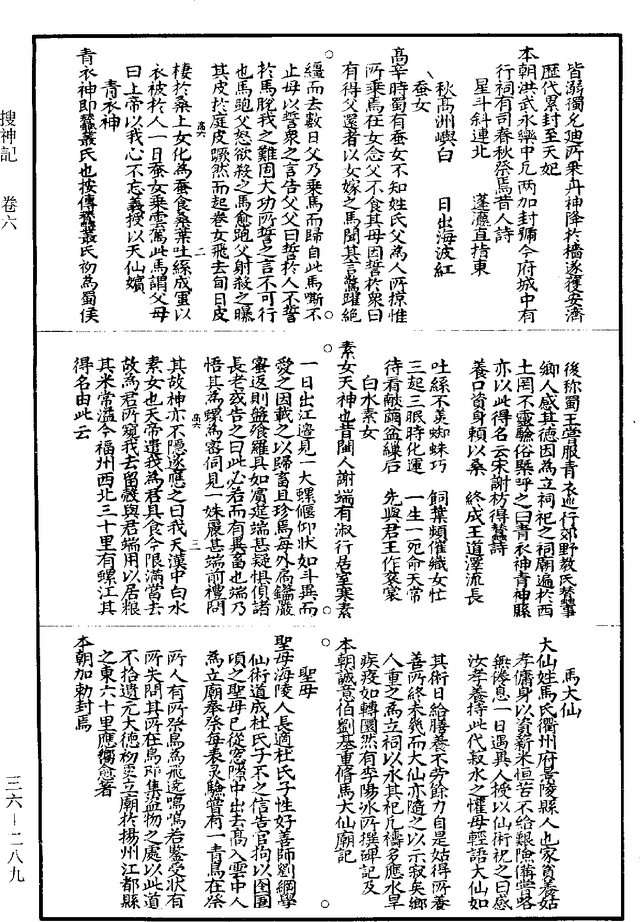 皆溺獨免迪所乘舟神降於檣遂獲安濟
歷代累封至天妃
本朝洪武永樂中凡兩加封號今府城中有
行祠有司春秋祭焉昔人詩
星斗斜連北　蓬瀛直指東
秋高洲嶼白　日出海波紅
蚕女
高辛時蜀有蚕女不知姓氏父為人所掠惟
所乘馬在女念父不食其母因誓於衆曰
有得父還者以女嫁之馬聞其言驚躍絕
繮而去數日父乃乘馬而歸自此馬嘶不
止母以誓衆之言告父父曰誓於人不誓
於馬脫我之難固大功所誓之言不可行
也馬跑父怒欲殺之馬愈跑父射殺之曝
其皮於庭皮蹶然而起卷女飛去旬日皮
棲於桑上女化為蚕食桑葉吐絲成蛋以
衣被於人一日蚕女乘雲駕此馬謂父母
曰上帝以我心不忘義授以天仙嬪
青衣神
青衣神即蠶叢氏也按傳蠶叢氏初為蜀侯
高六　二
後称蜀王甞服青衣巡行郊野教民蚕事
鄉人感其德因為立祠祀之祠廟遍於西
土罔不靈驗俗槩呼之曰青衣神青神縣
亦以此得名云宋謝枋得蚕詩
養口資身賴以桑　終成王道澤流長
吐絲不羨蜘蛛巧　飼葉頻催織女忙
三起三眠時化運　一生一死命天常
待看獻繭盆繰后　先與君王作袞裳
白水素女
素女天神也昔閩人謝端有淑行居室寒素
一日出江邊見一大螺偃仰狀如斗異而
愛之因載之以歸畜且珍焉每外扃鐍嚴
密返則盤飧羅具如賓筵端甚疑惧偵諸
長老或告之曰此必若而有異畜也端乃
悟其為螺為客伺見一姝麗甚端前禮問
其故神亦不隱遂應之曰我天漢中白水
素女也天帝遣我為君具食今限滿當去
故為君所窺我去留殼與君端用以居粮
其米常溢今福州西北三十里有螺江其
得名由此云
高六　三
馬大仙
大仙姓馬氏衢州府景陵縣人也家貧養姑
孝傭身以資薪米恒苦不給艱險備甞略
無倦息一日遇異人授以仙術祝之曰感
汝孝養持此代叔水之懽母輕語大仙如
其術日給膳養不劳餘力自是姑得所養
善所終未幾而大仙亦隨之以示寂矣鄉
人重之為立祠以永其祀凡禱多應水旱
疾疫如轉圜然有李陽冰所撰碑記及
本朝誠意伯劉基重脩馬大仙廟記
聖母
聖母海陵人長適杜氏子性好善師劉綱學
仙術道成杜氏子不之信告官拘以囹圄
頃之聖母已從窓隙中出去高入雲中人
為立廟奉祭每表灵驗甞有一青鳥在祭
所人有所祭鳥為飛遶鳴鳴若鑒受狀有
所失問其所在鳥即集盜物之處以此道
不拾遺元大德初更立廟於揚州江都縣
之東六十里應禱愈著
本朝加勅封焉
搜神記　卷六
三六–二八九